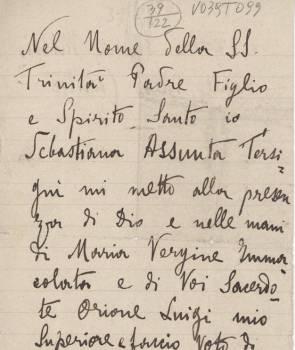 39
122
V039T099
Nel Nome della SS.
Trinità Padre Figlio
e Spirito Santo io
Sebastiana Assunta Tersi
gni mi metto alla presen
za di Dio e nelle mani
di Maria Vergine Imma
colata e di Voi Sacerdo
te Orione Luigi mio
Superiore e faccio Voto di